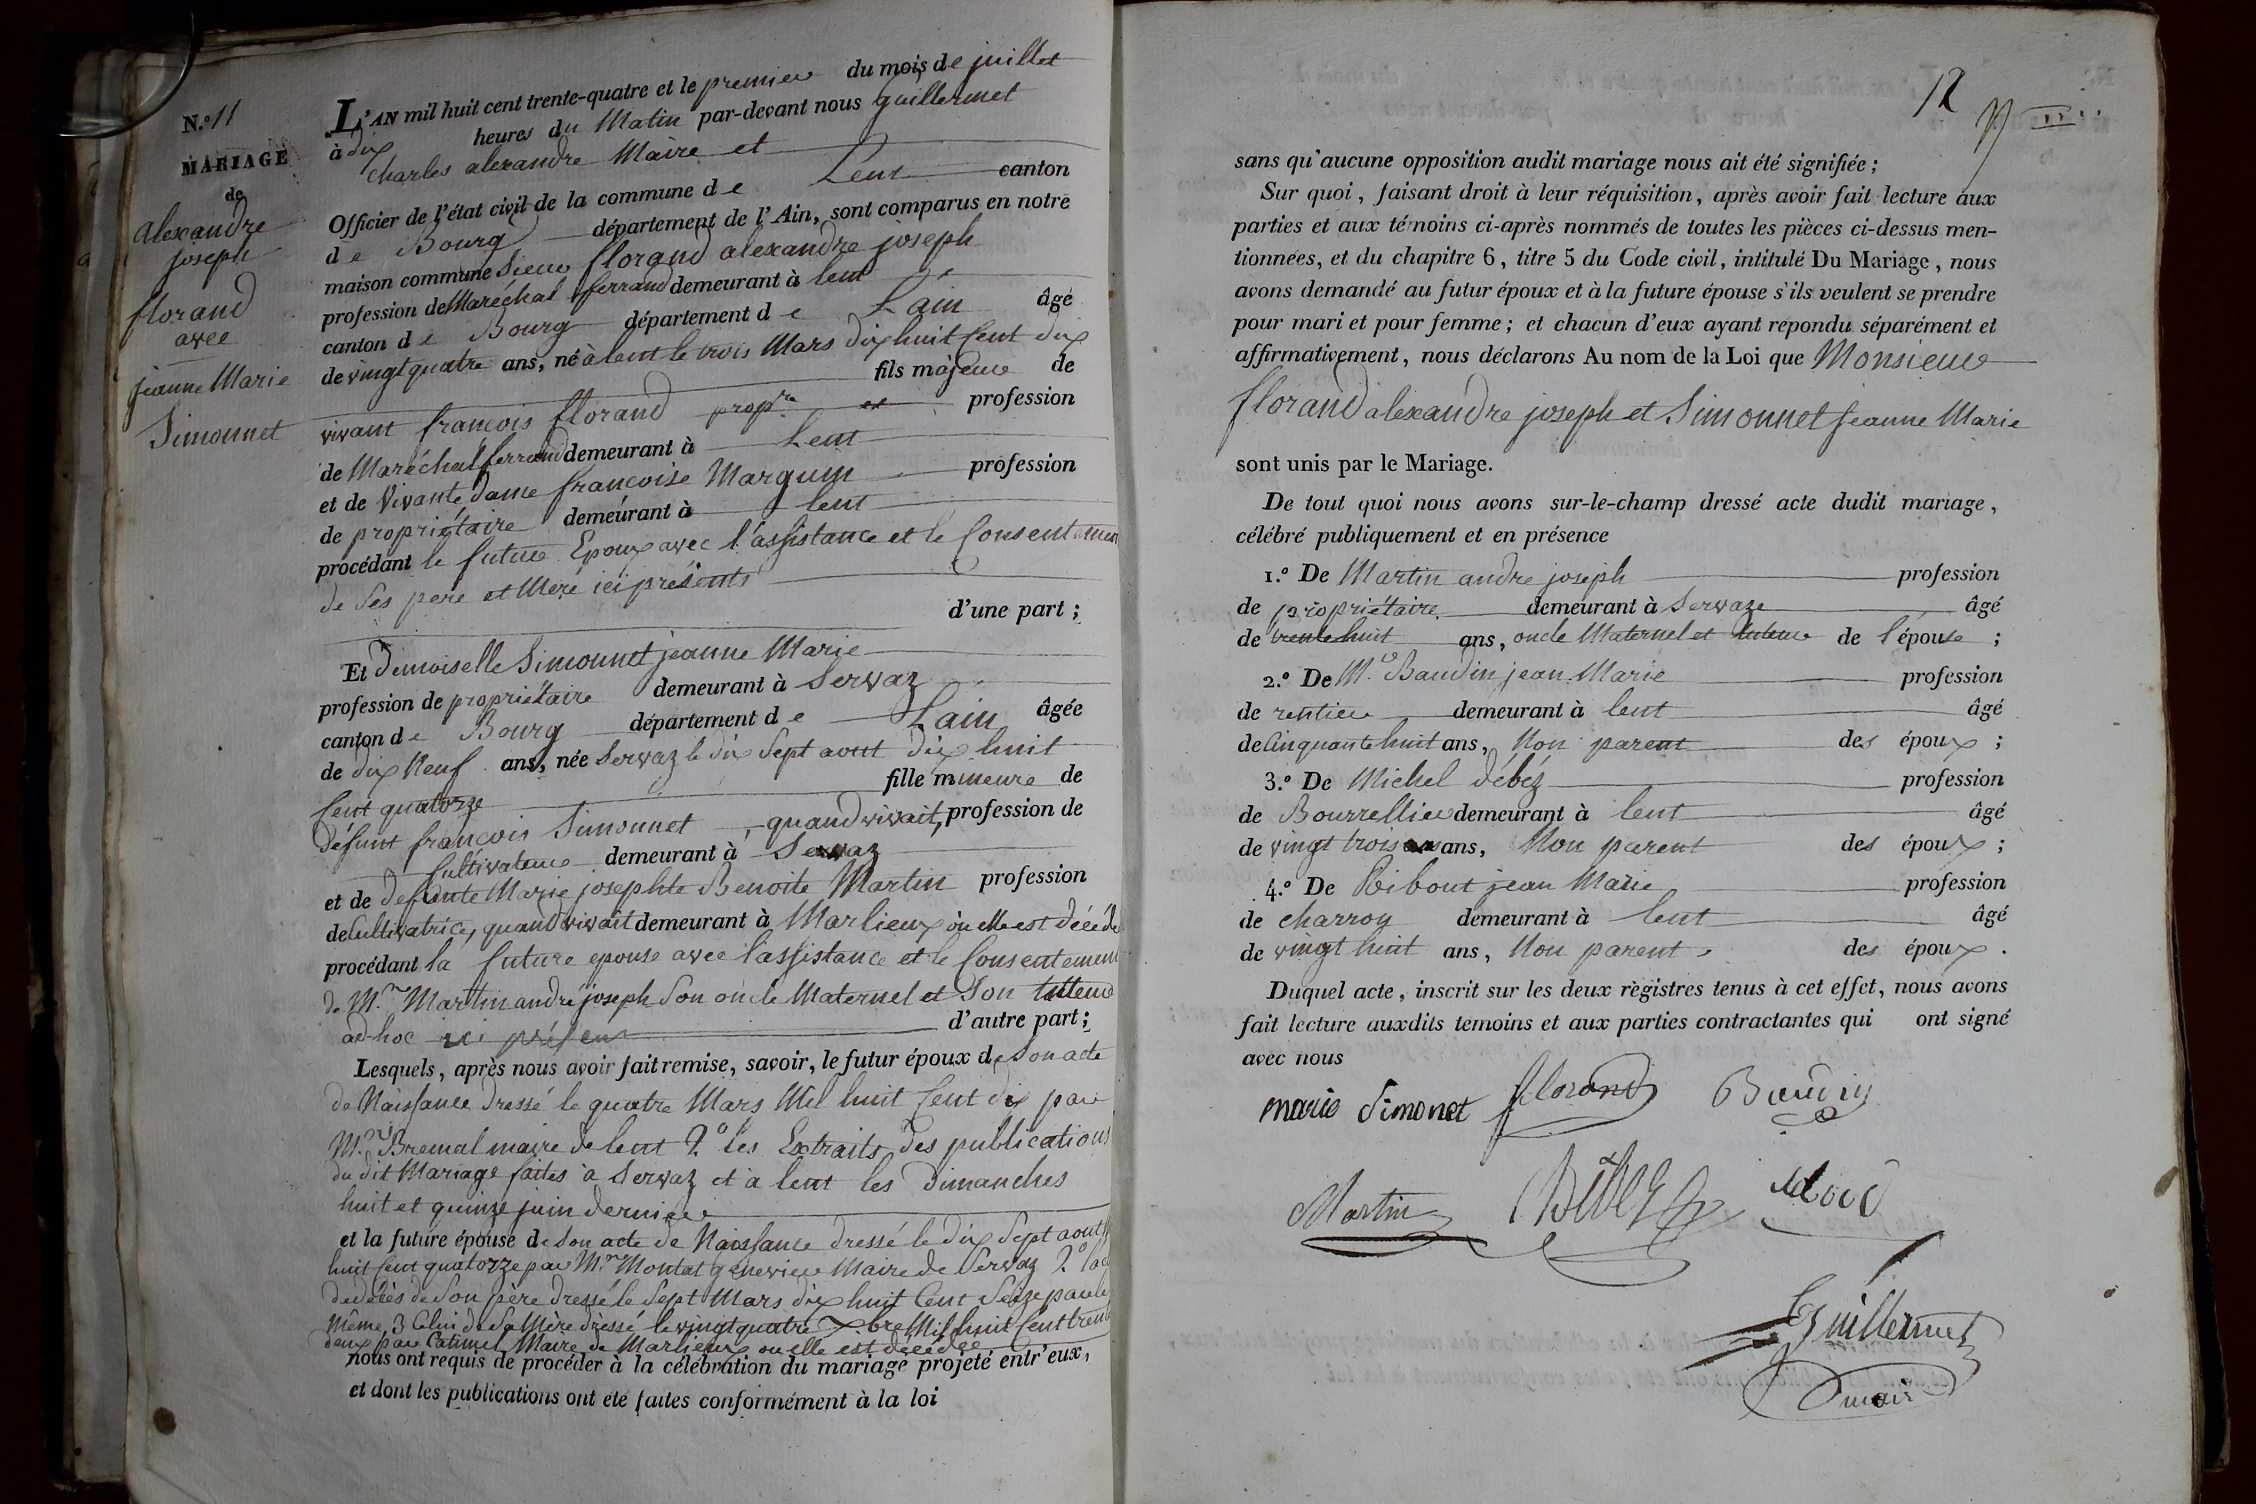 N.º 11
MARIAGE
de
alexandre
joseph
florand
avec
jeanne Marie
Simonnet
L'AN mil huit cent trente-quatre et le premier du mois de juillet
à dix heures du Matin par-devant nous guillermet
Charles alexandre Maire et
Officier de l'état civil de la commune de Lent canton
de Bourg département de l'Ain, sont comparus en notre
maison commune Sieur florand alexandre joseph
profession de Maréchal ferrand demeurant à lent
canton de Bourg département de Lain âgé
de vingt quatre ans, né à lent le trois Mars dix huit Cent dix
fils majeur de
vivant françois florand propre et profession
de Maréchal ferrand demeurant à Lent
et de Vivante dame françoise Marguin profession
de propriétaire demeurant à lent
procédant le futur Epoux avec l'assistance et le Consentemen
de Ses pere et Mere ici présents
d'une part ;
Et Demoiselle Simonnet jeanne Marie
profession de propriétaire demeurant à Servaz
canton de Bourg département de Lain âgée
de dix Neuf ans, née Servaz le dix Sept aout dix huit
Cent quatorze fille mineure de
défunt françois Simonnet , quand vivait, profession de
Cultivateur demeurant à Servaz
et de Defunte Marie josephte Benoite Martin profession
de Cultivatrice, quand vivait demeurant à Marlieux où elle est décédé
procédant la future epouse avec l'assistance et le Consentement
de M.r Martin andré joseph Son oncle Maternel et Son tutteur
ad-hoc ici présen d'autre part ;
Lesquels, après nous avoir fait remise, savoir, le futur époux de Son acte
de Naissance Dressé le quatre Mars Mil huit Cent dix par
M.r Bremal maire de lent 2º les Extraits des publications
du dit Mariage faites à Servaz et à lent les Dimanches
huit et quinze juin dernier
et la future épouse de Son acte de Naissance dressé le dix Sept aout
huit Cent quatorze par M.r Montat genevier Maire de Servaz 2º
de décès de Son père Dressé le Sept Mars dix huit Cent Seize par le
même 3 Celui de Sa Mère dressé le vingt quatre Xbre Mil huit Cent trent
deux par Catimel Maire de Marlieux ou elle est décédée
nous ont requis de procéder à la célébration du mariage projeté entr'eux,
et dont les publications ont été faites conformément à la loi
12
sans qu'aucune opposition audit mariage nous ait été signifiée ;
Sur quoi, faisant droit à leur réquisition, après avoir fait lecture aux
parties et aux témoins ci-après nommés de toutes les pièces ci-dessus men-
tionnées, et du chapitre 6, titre 5 du Code civil, intitulé Du Mariage, nous
avons demandé au futur époux et à la future épouse s'ils veulent se prendre
pour mari et pour femme ; et chacun d'eux ayant répondu séparément et
affirmativement, nous déclarons Au nom de la Loi que Monsieur
florand alexandre joseph et Simonnet jeanne Marie
sont unis par le Mariage.
De tout quoi nous avons sur-le-champ dressé acte dudit mariage,
célébré publiquement et en présence
1.º De Martin andre joseph profession
de propriétaire demeurant à Servaze âgé
de trente huit ans, oncle Maternel et tuteur de l'épouse ;
2.º De M.r Baudin jean Marie profession
de rentier demeurant à lent âgé
de Cinquante huit ans, Non parent des époux ;
3.º De Michel débéz profession
de Bourrellier demeurant à lent âgé
de vingt trois ans, Non parent des époux ;
4.º De Ribout jean Marie profession
de charron demeurant à lent âgé
de vingt huit ans, Non parent des époux .
Duquel acte, inscrit sur les deux régistres tenus à cet effet, nous avons
fait lecture auxdits témoins et aux parties contractantes qui ont signé
avec nous
marie Simonet florand Baudin
Martin
Guillermet
maire